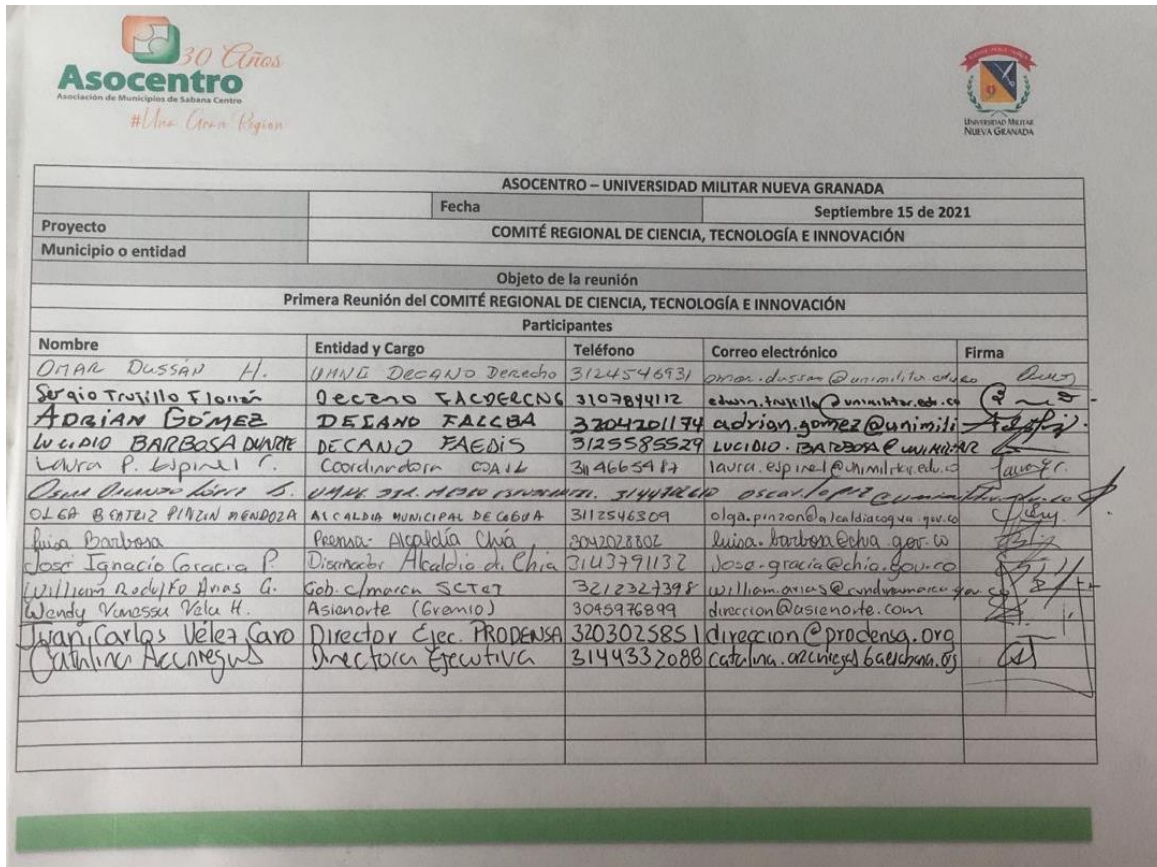 30 Años
Asocentro
Asociación de Municipios de Sabana Centro
#Una Gran Region
UNIVERSIDAD MILITAR
NUEVA GRANADA
ASOCENTRO – UNIVERSIDAD MILITAR NUEVA GRANADA
Fecha Septiembre 15 de 2021
Proyecto COMITÉ REGIONAL DE CIENCIA, TECNOLOGÍA E INNOVACIÓN
Municipio o entidad
Objeto de la reunión
Primera Reunión del COMITÉ REGIONAL DE CIENCIA, TECNOLOGÍA E INNOVACIÓN
Participantes
Nombre Entidad y Cargo Teléfono Correo electrónico Firma
OMAR DUSSÁN H. UMNG DECANO Derecho 3124546931 omar.dussan@unimilitar.edu.co
Sergio Trujillo Florián Decano FACDERCNG 3107844112 edwin.trujillo@unimilitar.edu.co
ADRIAN GÓMEZ DECANO FALCBA 3204201174 adrian.gomez@unimili
LUCIDIO BARBOSA DUARTE DECANO FAEDIS 3125585529 LUCIDIO.BARBOSA@UNIMILITAR
Laura P. Espinel C. Coordinadora laura.espinel@unimilitar.edu.co
Oscar López
OLGA BEATRIZ PINZÓN MENDOZA ALCALDIA MUNICIPAL DE COGUA 3112546309 olga.pinzon@alcaldiacogua.gov.co
Luisa Barbosa Prensa- Alcaldía Chía 3042028802 luisa.barbosa@chia.gov.co
José Ignacio Gracia P. Alcaldia de Chia 3143791132 jose.gracia@chia.gov.co
William Rodolfo Arias G. Gob. c/marca SCTeI 3212327398 william.arias@cundinamarca.gov.co
Wendy Vanessa Vela H. Asienorte (Gremio) 3045976899 direccion@asienorte.com
Juan Carlos Vélez Caro Director Ejec. PRODENSA 3203025851 direccion@prodensa.org
Catalina Directora Ejecutiva 3144332088